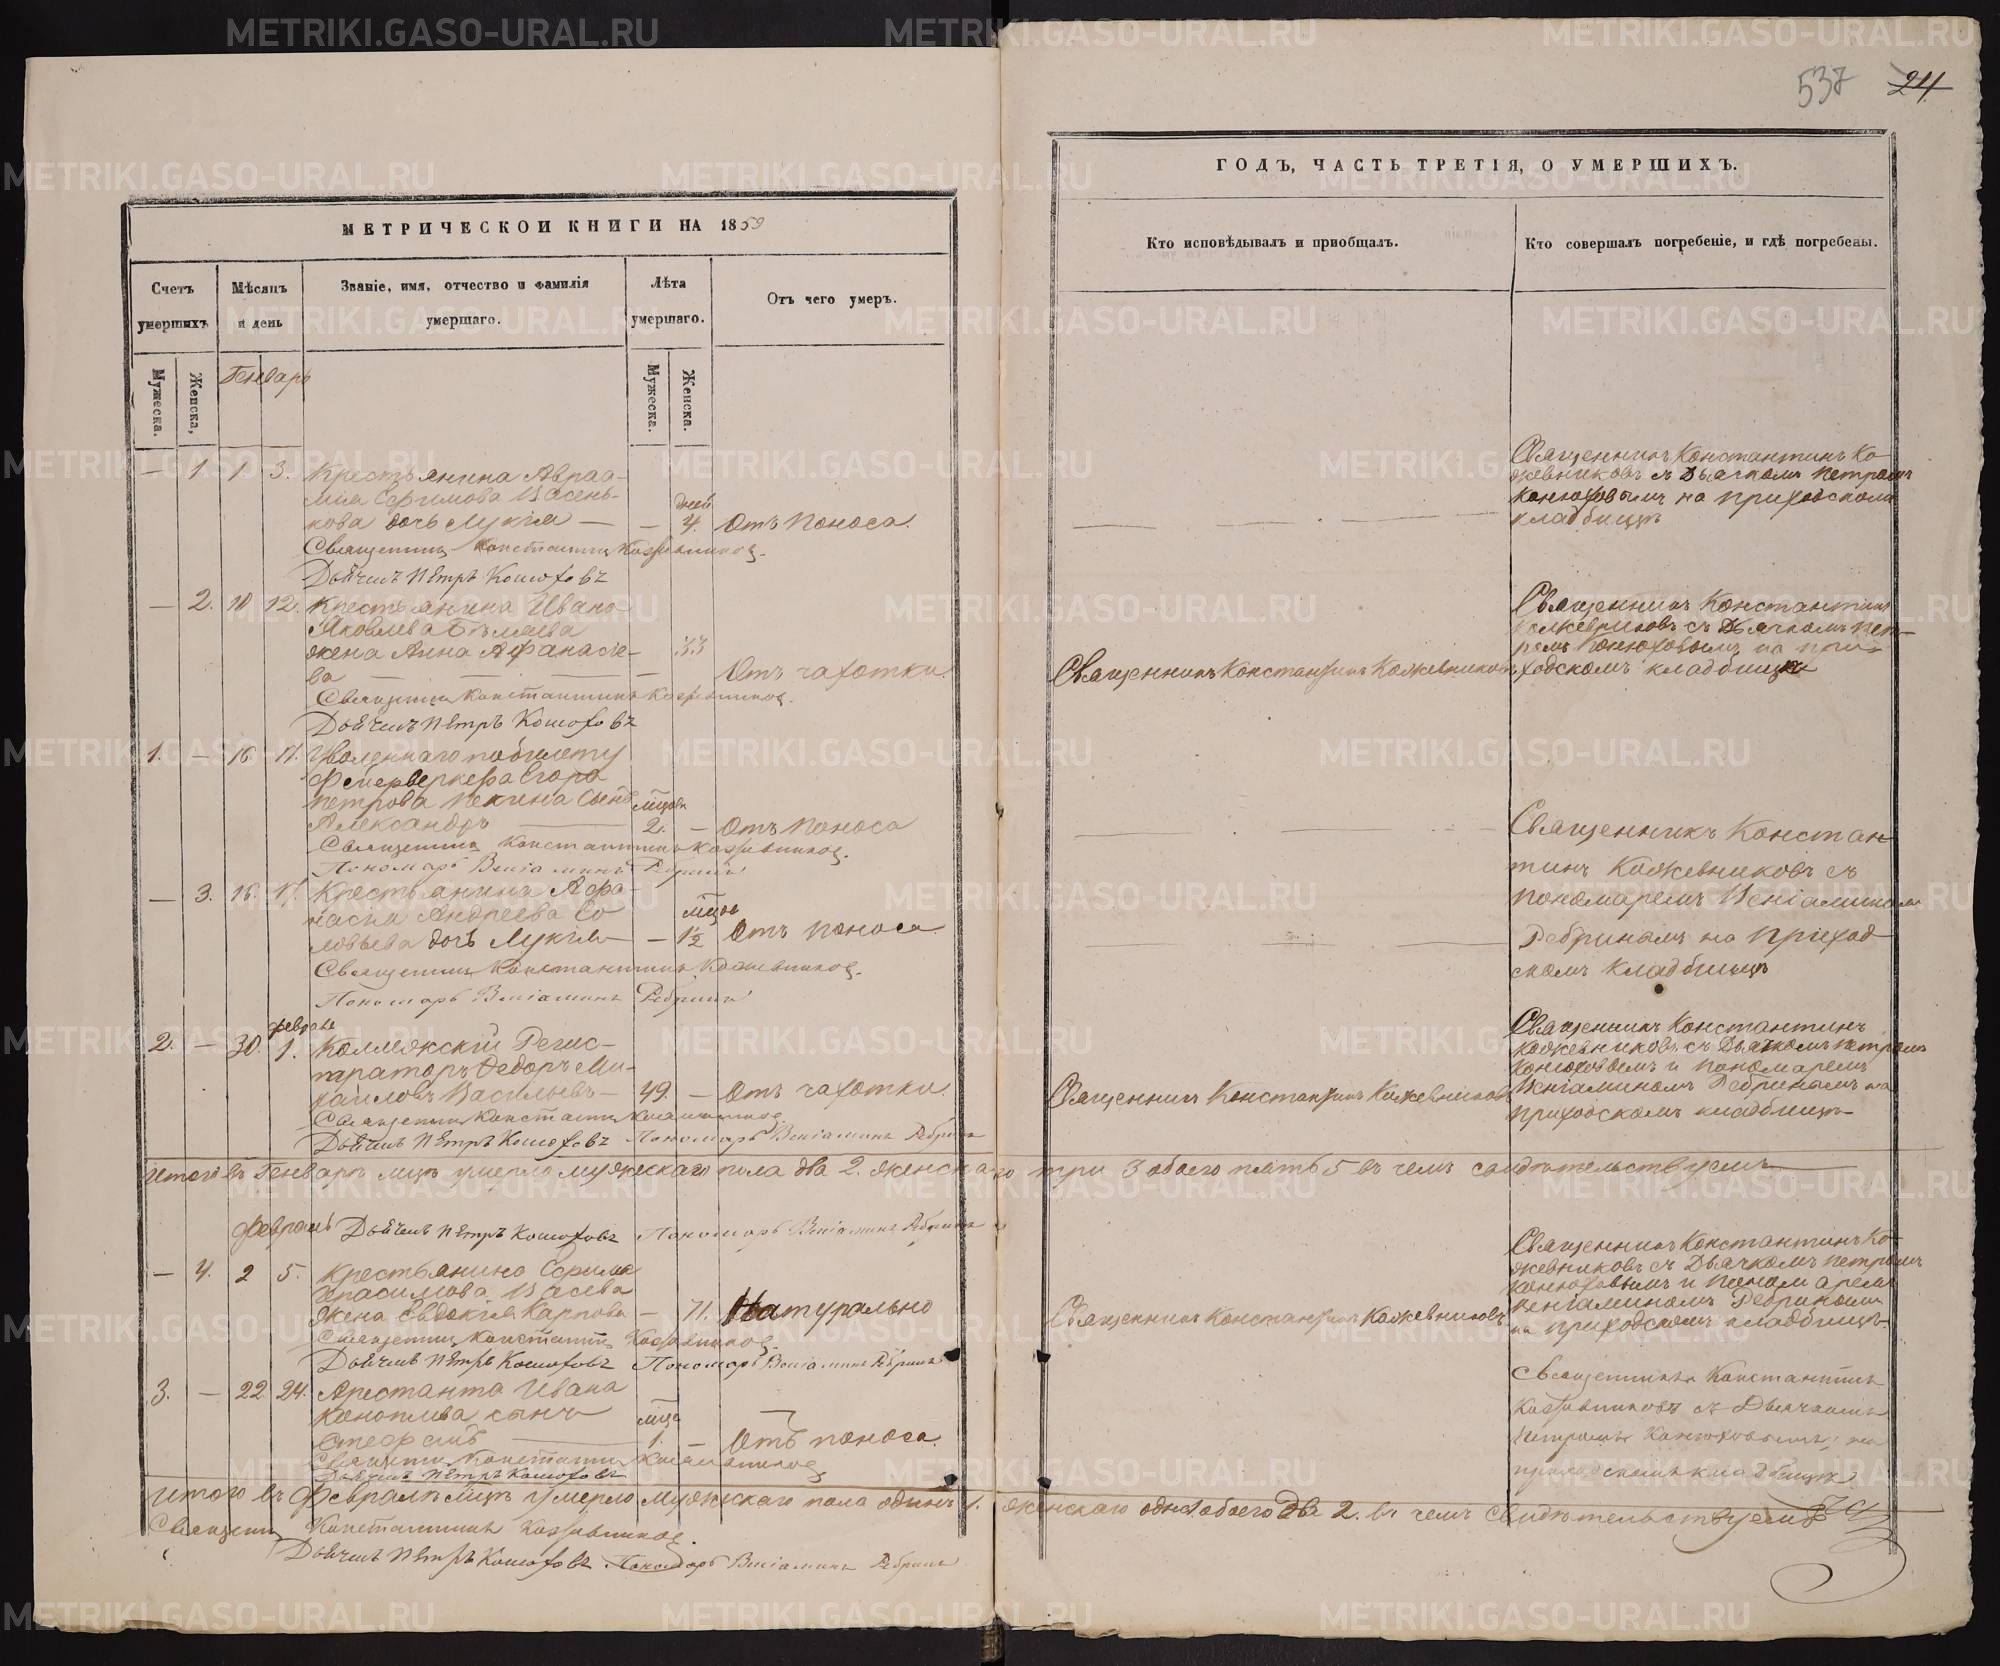 537 24
МЕТРИЧЕСКОЙ КНИГИ НА 1859
ГОДЪ, ЧАСТЬ ТРЕТІЯ, О УМЕРШИХЪ.
Счетъ умершихъ
Мѣсяцъ и день
Званіе, имя, отчество и фамилія умершаго.
Лѣта умершаго.
Отъ чего умеръ.
Кто исповѣдывалъ и приобщалъ.
Кто совершалъ погребеніе, и гдѣ погребены.
Мужеска.
Женска,
Мужеска.
Женска.
Генварь
— 1. 1 3. Крестьянина Авраа-
мия Ефимова Васень-
дней
кова дочь Лукія — — 4. Отъ поноса.
Священникъ Константинъ Кожевниковъ.
Дьячекъ Петръ Конюховъ
Священникъ Константинъ Ко-
жевниковъ съ Дьячкомъ Петромъ
Конюховымъ на приходскомъ
кладбищѣ
— 2. 10 12. Крестьянина Ивана
Яковлева Бѣляева
жена Анна Афанасье- 33
ва — — — — Отъ чахотки.
Священникъ Константинъ Кожевниковъ.
Дьячекъ Петръ Конюховъ
Священникъ Константинъ Кожевниковъ
Священникъ Константинъ
Кожевниковъ съ Дьячкомъ Пет-
ромъ Конюховымъ на при-
ходскомъ кладбищѣ
1. — 16 17. Уволеннаго по билету
Фейерверкера Егора
Петрова Пекина сынъ мѣсяца
Александръ — 2. — Отъ поноса
Священникъ Константинъ Кожевниковъ.
Пономарь Веніаминъ Ребринъ
— 3. 16. 17. Крестьянина Афа-
насья Андреева Со- мѣсяца
ловьева дочь Лукія — 1½ Отъ поноса.
Священникъ Константинъ Кожевниковъ.
Пономарь Веніаминъ Ребринъ
Священникъ Констан
тинъ Кожевниковъ съ
пономаремъ Веніаминомъ
Ребринымъ на приход
скомъ кладбищѣ
февраля
2. — 30. 1. Коллежскій Регис-
траторъ Федоръ Ми-
хаиловъ Васильевъ — 49. — Отъ чахотки.
Священникъ Константинъ Кожевниковъ
Дьячекъ Петръ Конюховъ Пономарь Веніаминъ Ребринъ
Священникъ Константинъ Кожевниковъ
Священникъ Константинъ
Кожевниковъ съ Дьячкомъ Петромъ
Конюховымъ и пономаремъ
Веніаминомъ Ребринымъ на
приходскомъ кладбищѣ
Итого въ Генварѣ мцѣ умерло мужескаго пола два 2. женскаго три 3 обоего пять 5 въ чемъ свидѣтельствуемъ
Февраль Дьячекъ Петръ Конюховъ Пономарь Веніаминъ Ребринъ
— 4. 2 5. Крестьянина Ефима
Васева
жена Евдокія Карпова — 71. Натурально
Священникъ Константинъ Кожевниковъ.
Дьячекъ Петръ Конюховъ Пономарь Веніаминъ Ребринъ
Священникъ Константинъ Кожевниковъ
Священникъ Константинъ Ко-
жевниковъ съ Дьячкомъ Петромъ
Конюховымъ и Пономаремъ
Веніаминомъ Ребринымъ
на приходскомъ кладбищѣ
3. — 22 24. Арестанта Ивана
сынъ мѣсяца
1. — Отъ поноса.
Константинъ Кожевниковъ
Дьячекъ Петръ Конюховъ
Священникъ Константинъ
Кожевниковъ съ Дьячкомъ
Петромъ Конюховымъ, на
приходскомъ кладбищѣ
Итого въ Февралѣ мцѣ умерло мужескаго пола одинъ 1. женскаго одна обоего два 2. въ чемъ свидѣтельствуемъ
Священникъ Константинъ Кожевниковъ.
Дьячекъ Петръ Конюховъ Пономарь Веніаминъ Ребринъ
METRIKI.GASO-URAL.RU